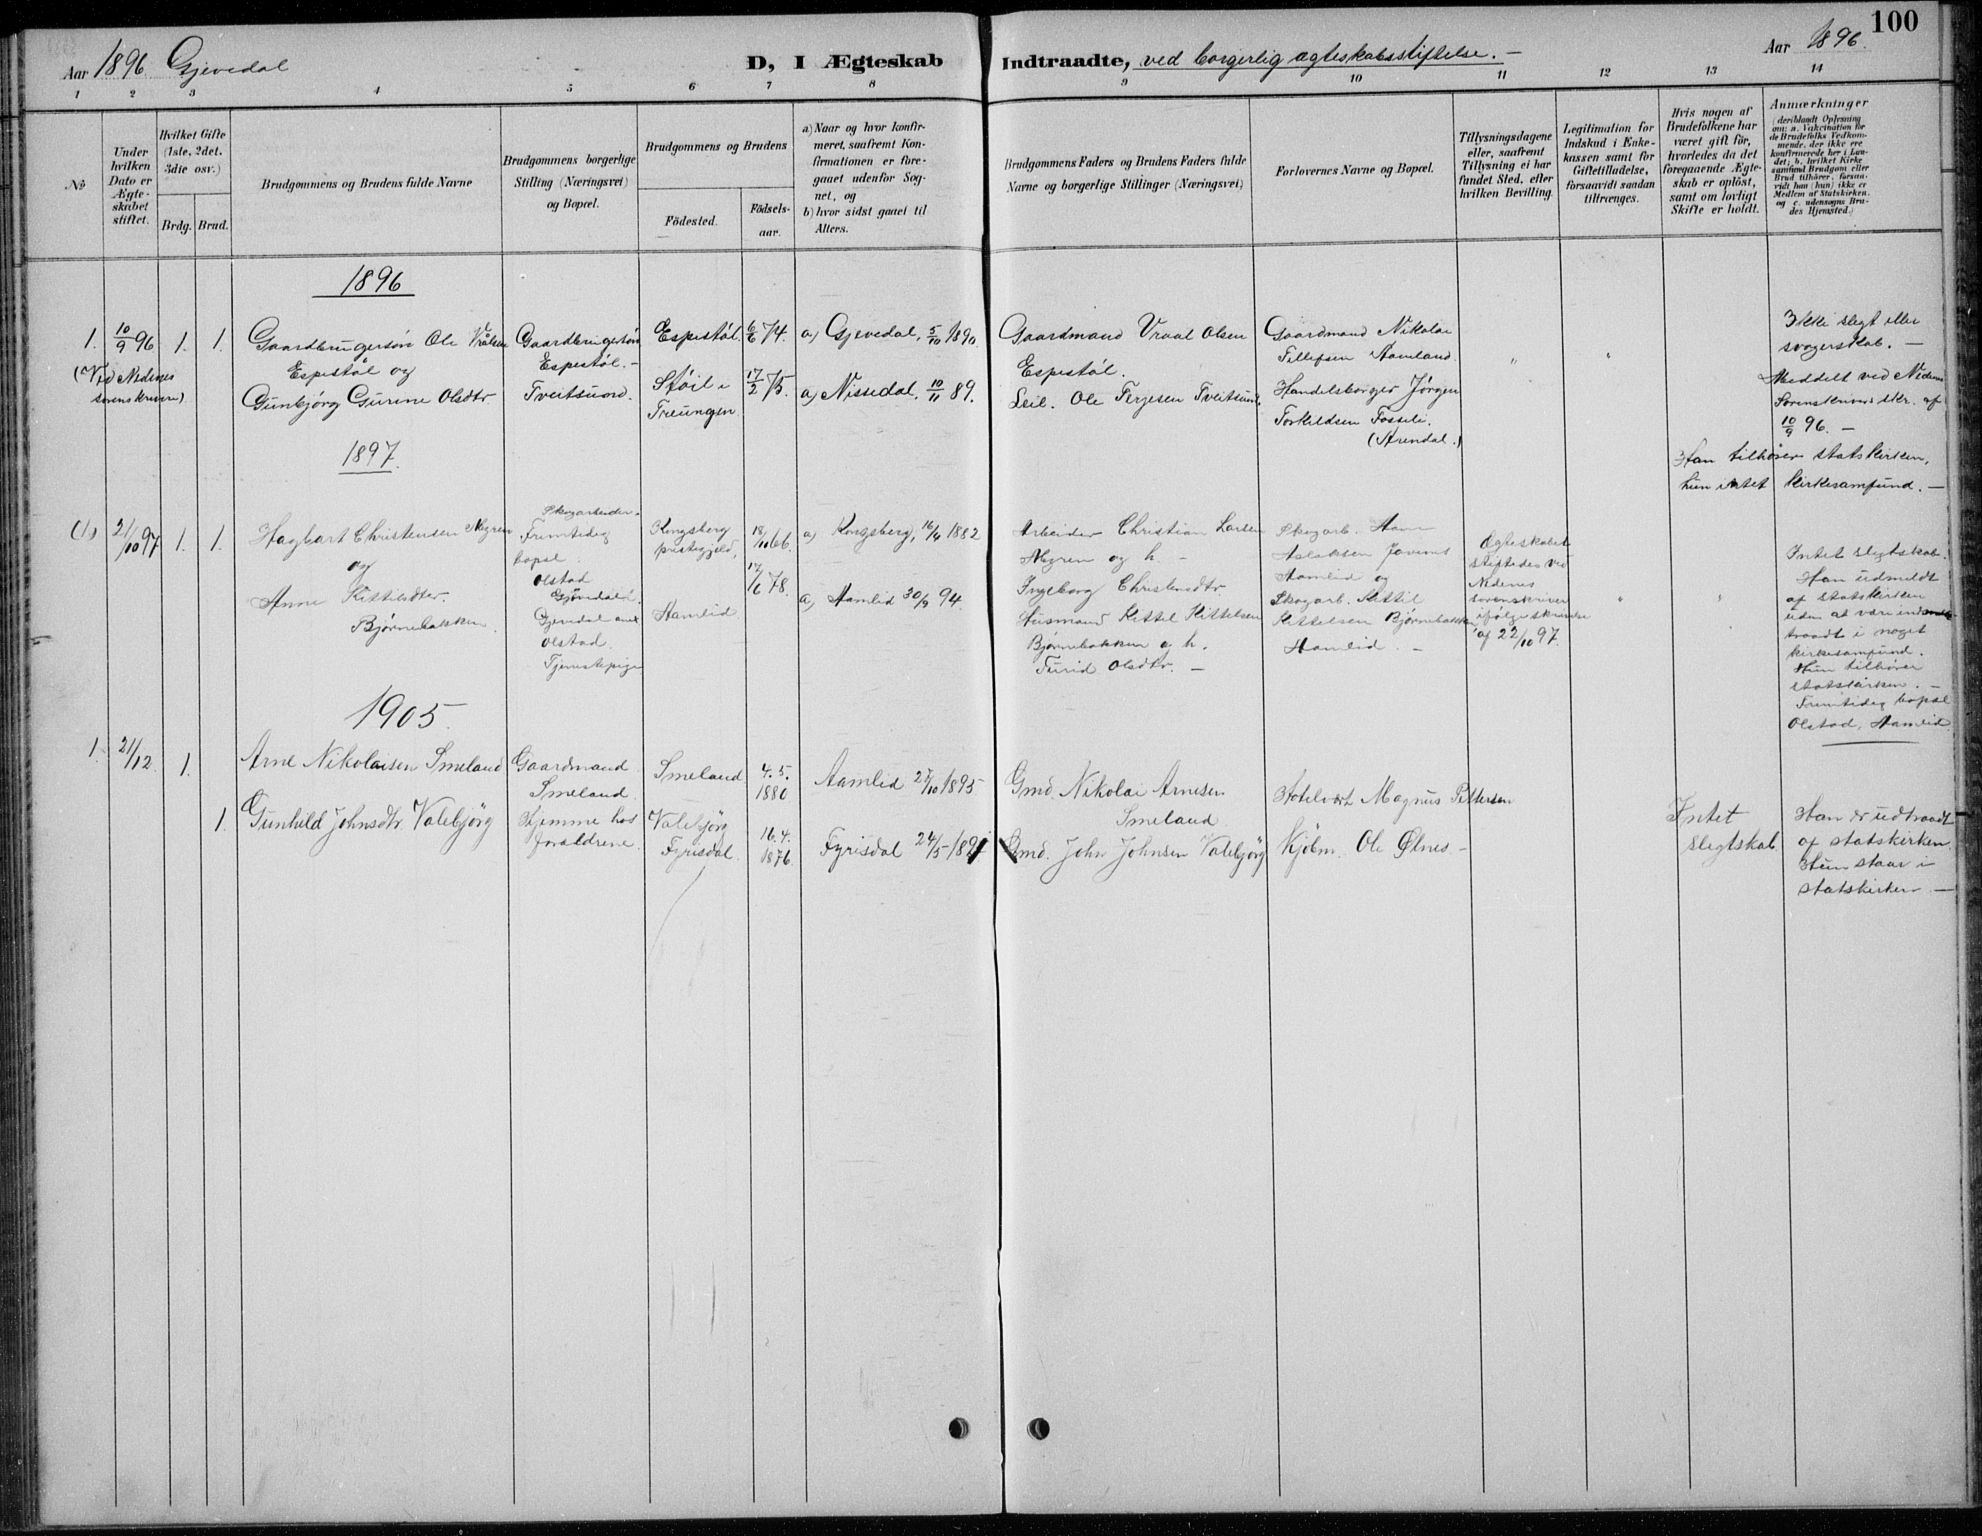 100
Aar 1896. Gjevedal
D, I Ægteskab Indtraadte, ved borgerlig ægteskabsstiftelse. —
Aar 1896.
1 2 3 4 5 6 7 8 9 10 11 12 13 14
No
Under hvilken Dato er Ægteskabet stiftet.
Hvilket Gifte (1ste, 2det. 3die osv.)
Brdg. Brud.
Brudgommens og Brudens fulde Navne
Brudgommens borgerlige Stilling (Næringsvei) og Bopæl.
Brudgommens og Brudens
Födested.
Födselsaar.
a) Naar og hvor konfirmeret, saafremt Konfirmationen er foregaaet udenfor Sognet, og
b) hvor sidst gaaet til Alters.
Brudgommens Faders og Brudens Faders fulde Navne og borgerlige Stillinger (Næringsvei)
Forlovernes Navne og Bopæl.
Tillysningsdagene eller, saafremt Tillysning ei har fundet Sted, efter hvilken Bevilling.
Legitimation for Indskud i Enkekassen samt for Giftetilladelse, forsaavidt saadan tiltrænges.
Hvis nogen af Brudefolkene har været gift för, hvorledes da det foregaaende Ægteskab er oplöst, samt om lovligt Skifte er holdt.
Anmærkninger
(deriblandt Oplysning om: a. Vakcination for de Brudefolks Vedkommende, der ikke ere konfirmerede her i Landet; b. hvilket Kirkesamfund Brudgom eller Brud tilhörer, forsaavidt han (hun) ikke er Medlem af Statskirken, og c. udensogns Brudes Hjemsted.)
1896
1. 10/9 96 1. 1.
(Ved Nedenes sorenskriveri)
Gaardbrugersön Ole Vrålsen
Espestöl og
Gunbjörg Gurine Olsdtr
Gaardbrugersön
Espestöl. —
Tveitsund.
Espestöl
Stöil i
Treungen
6/6 74.
17/2 75.
a) Gjevedal, 5/10 1890.
a) Nissedal, 10/11 89.
Gaardmand Vraal Olsen
Espestöl.
Leil. Ole Terjesen Tveitsund
Gaardmand Nikolai
Tellefsen Aamland.
Handelsborger Jörgen
Torkildsen Fosseli.
(Arendal.)
" "
Ikke slegt eller
svogerskab. —
Meddelt ved Nedenes
Sorenskrivers skr. af
10/9 96. —
1897.
Han tilhörer statskirken,
hun intet kirkesamfund. —
(1.) 21/10 97 1. 1.
Hagbart Christensen Myren
og
Anne Kittilsdter.
Björnebakken
Skogarbeider
Fremtidig
bopæl.
Olstad
Gjövdal
Gjevedal
Olstad.
Tjenestepige
Kongsberg
prestegjeld,
Aamlid.
18/10 66.
17/6 78.
a) Kongsberg, 16/4 1882
a) Aamlid 30/9 94.
Arbeider Christian Larsen
Myren og h. —
Ingeborg Christensdtr.
Husmand Kittel Kittelsen
Björnebakken og h.
Turid Olsdtr. —
Skogarb.
Aslaksen
Aamlid og
Skogarb. Kittil
Kittelsen Björnebakken
Aamlid. —
Ægteskabet
stiftedes ved
Nedenes
sorenskriveri
ifölge skrivelse
af 22/10 97.
" "
Intet slegtskab.
Han udmeldt
af statskirken
uden at være ind-
traadt i noget
kirkesamfund.
Hun tilhörer
statskirken. —
Fremtidig bopæl
Olstad, Aamlid
1905.
1. 21/12. 1.
Arne Nikolaisen Smeland
Gaardmand
Smeland.
Smeland
4. 5.
1880
Aamlid 27/10 1895
Gmd. Nikolai Arnesen
Smeland.
Hotelvært Magnus Pettersen
1.
Gunhild Johnsdtr. Valebjörg
Hjemme hos
foraldrene.
Valebjörg
Fyrisdal.
16. 4.
1876.
Fyrisdal 24/5 189
Gmd. John Johnsen Valebjörg
Kjöbm. Ole Ølnes —
Intet
slegtskab
Han er udtraadt
af statskirken.
Hun staar i
statskirken —